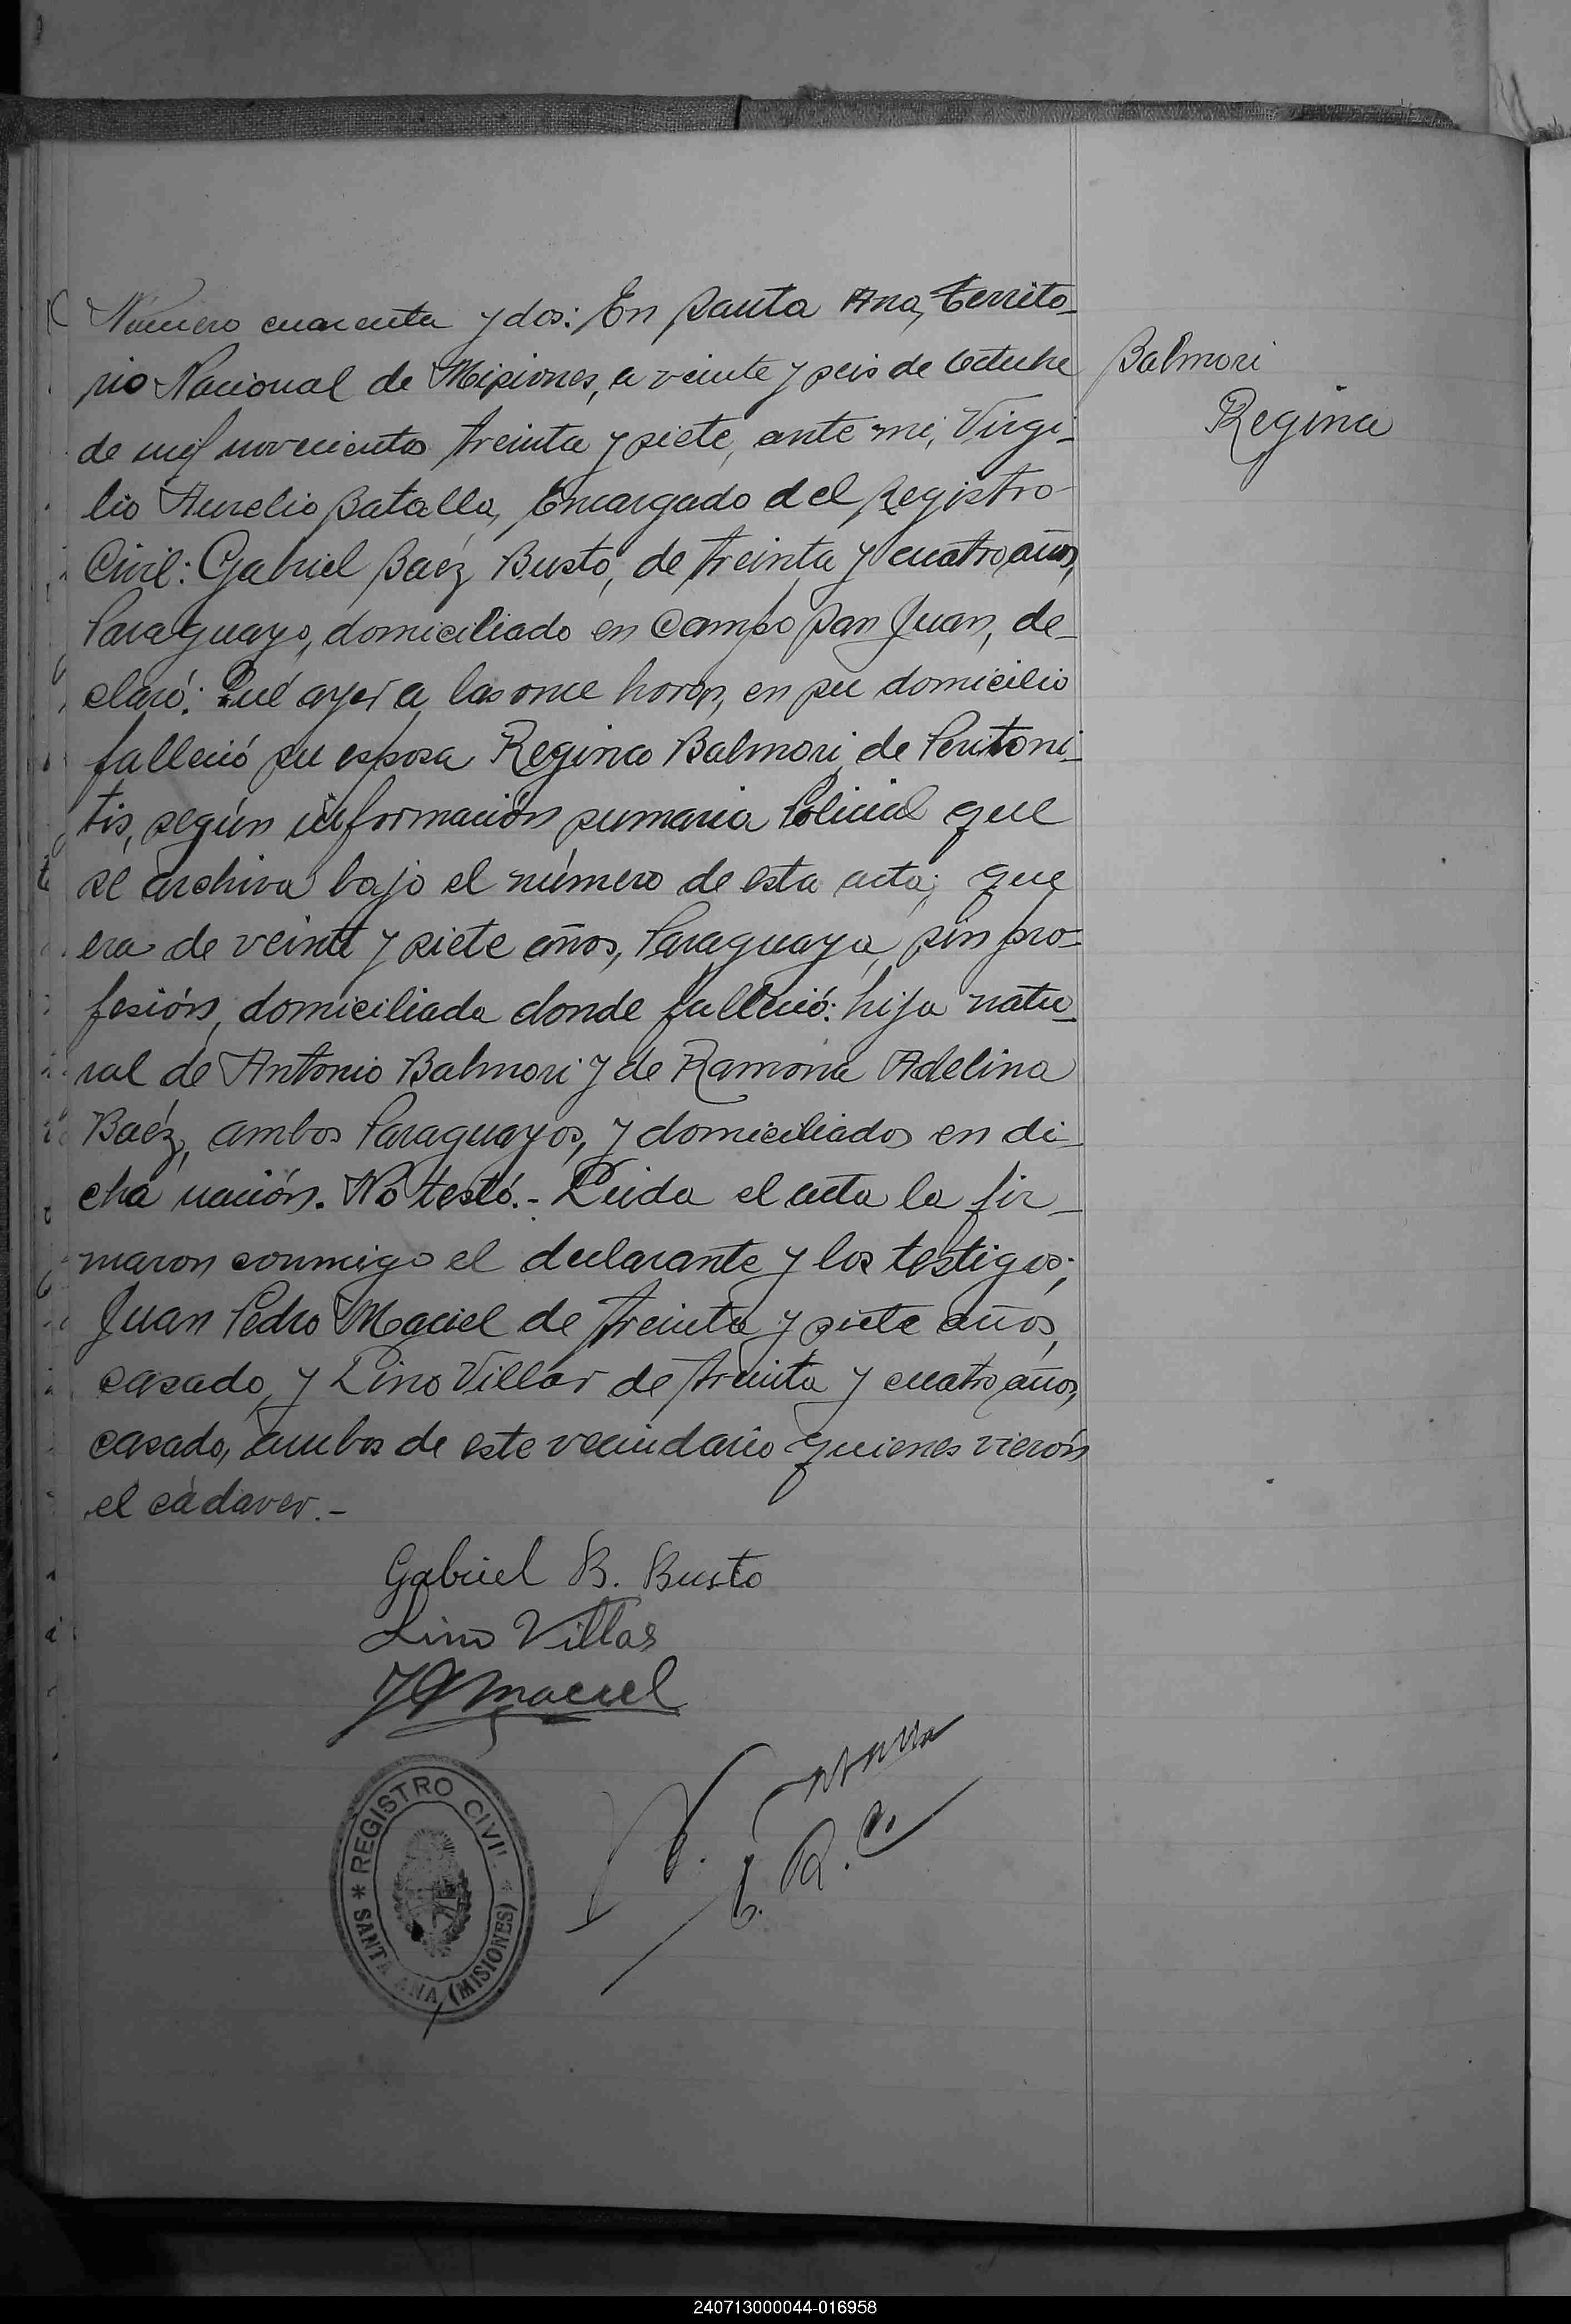 Número cuarenta y dos: En Santa Ana, Territo-
rio Nacional de Misiones, a veinte y seis de Octubre
de mil novecientos treinta y siete, ante mi, Virgi-
lio Aurelio Batalla, Encargado del Registro
Civil: Gabriel Baéz Busto, de treinta y cuatro años,
Paraguayo, domiciliado en Campo San Juan, de-
claró: Qué ayer a las once horas, en su domicilio
falleció su esposa Regina Balmori, de Peritoni-
tis, según información sumaria Policial que
se archiva bajo el número de esta acta; que
era de veinte y siete años, Paraguaya, sin pro-
fesión, domiciliada donde falleció: hija natu-
ral de Antonio Balmori y de Ramona Adelina
Baéz, ambos Paraguayos, y domiciliados en di-
cha nación. No testó.- Leida el acta la fir-
maron conmigo el declarante y los testigos;
Juan Pedro Maciel de treinta y siete años,
casado, y Lino Villar de treinta y cuatro años,
casado, ambos de este vecindario quienes vierón
el cádaver.-
Balmori
Regina
Gabriel B. Busto
Lino Villar
JPMaciel
E. R. C.
* REGISTRO CIVIL *
SANTA ANA (MISIONES)
240713000044-016958